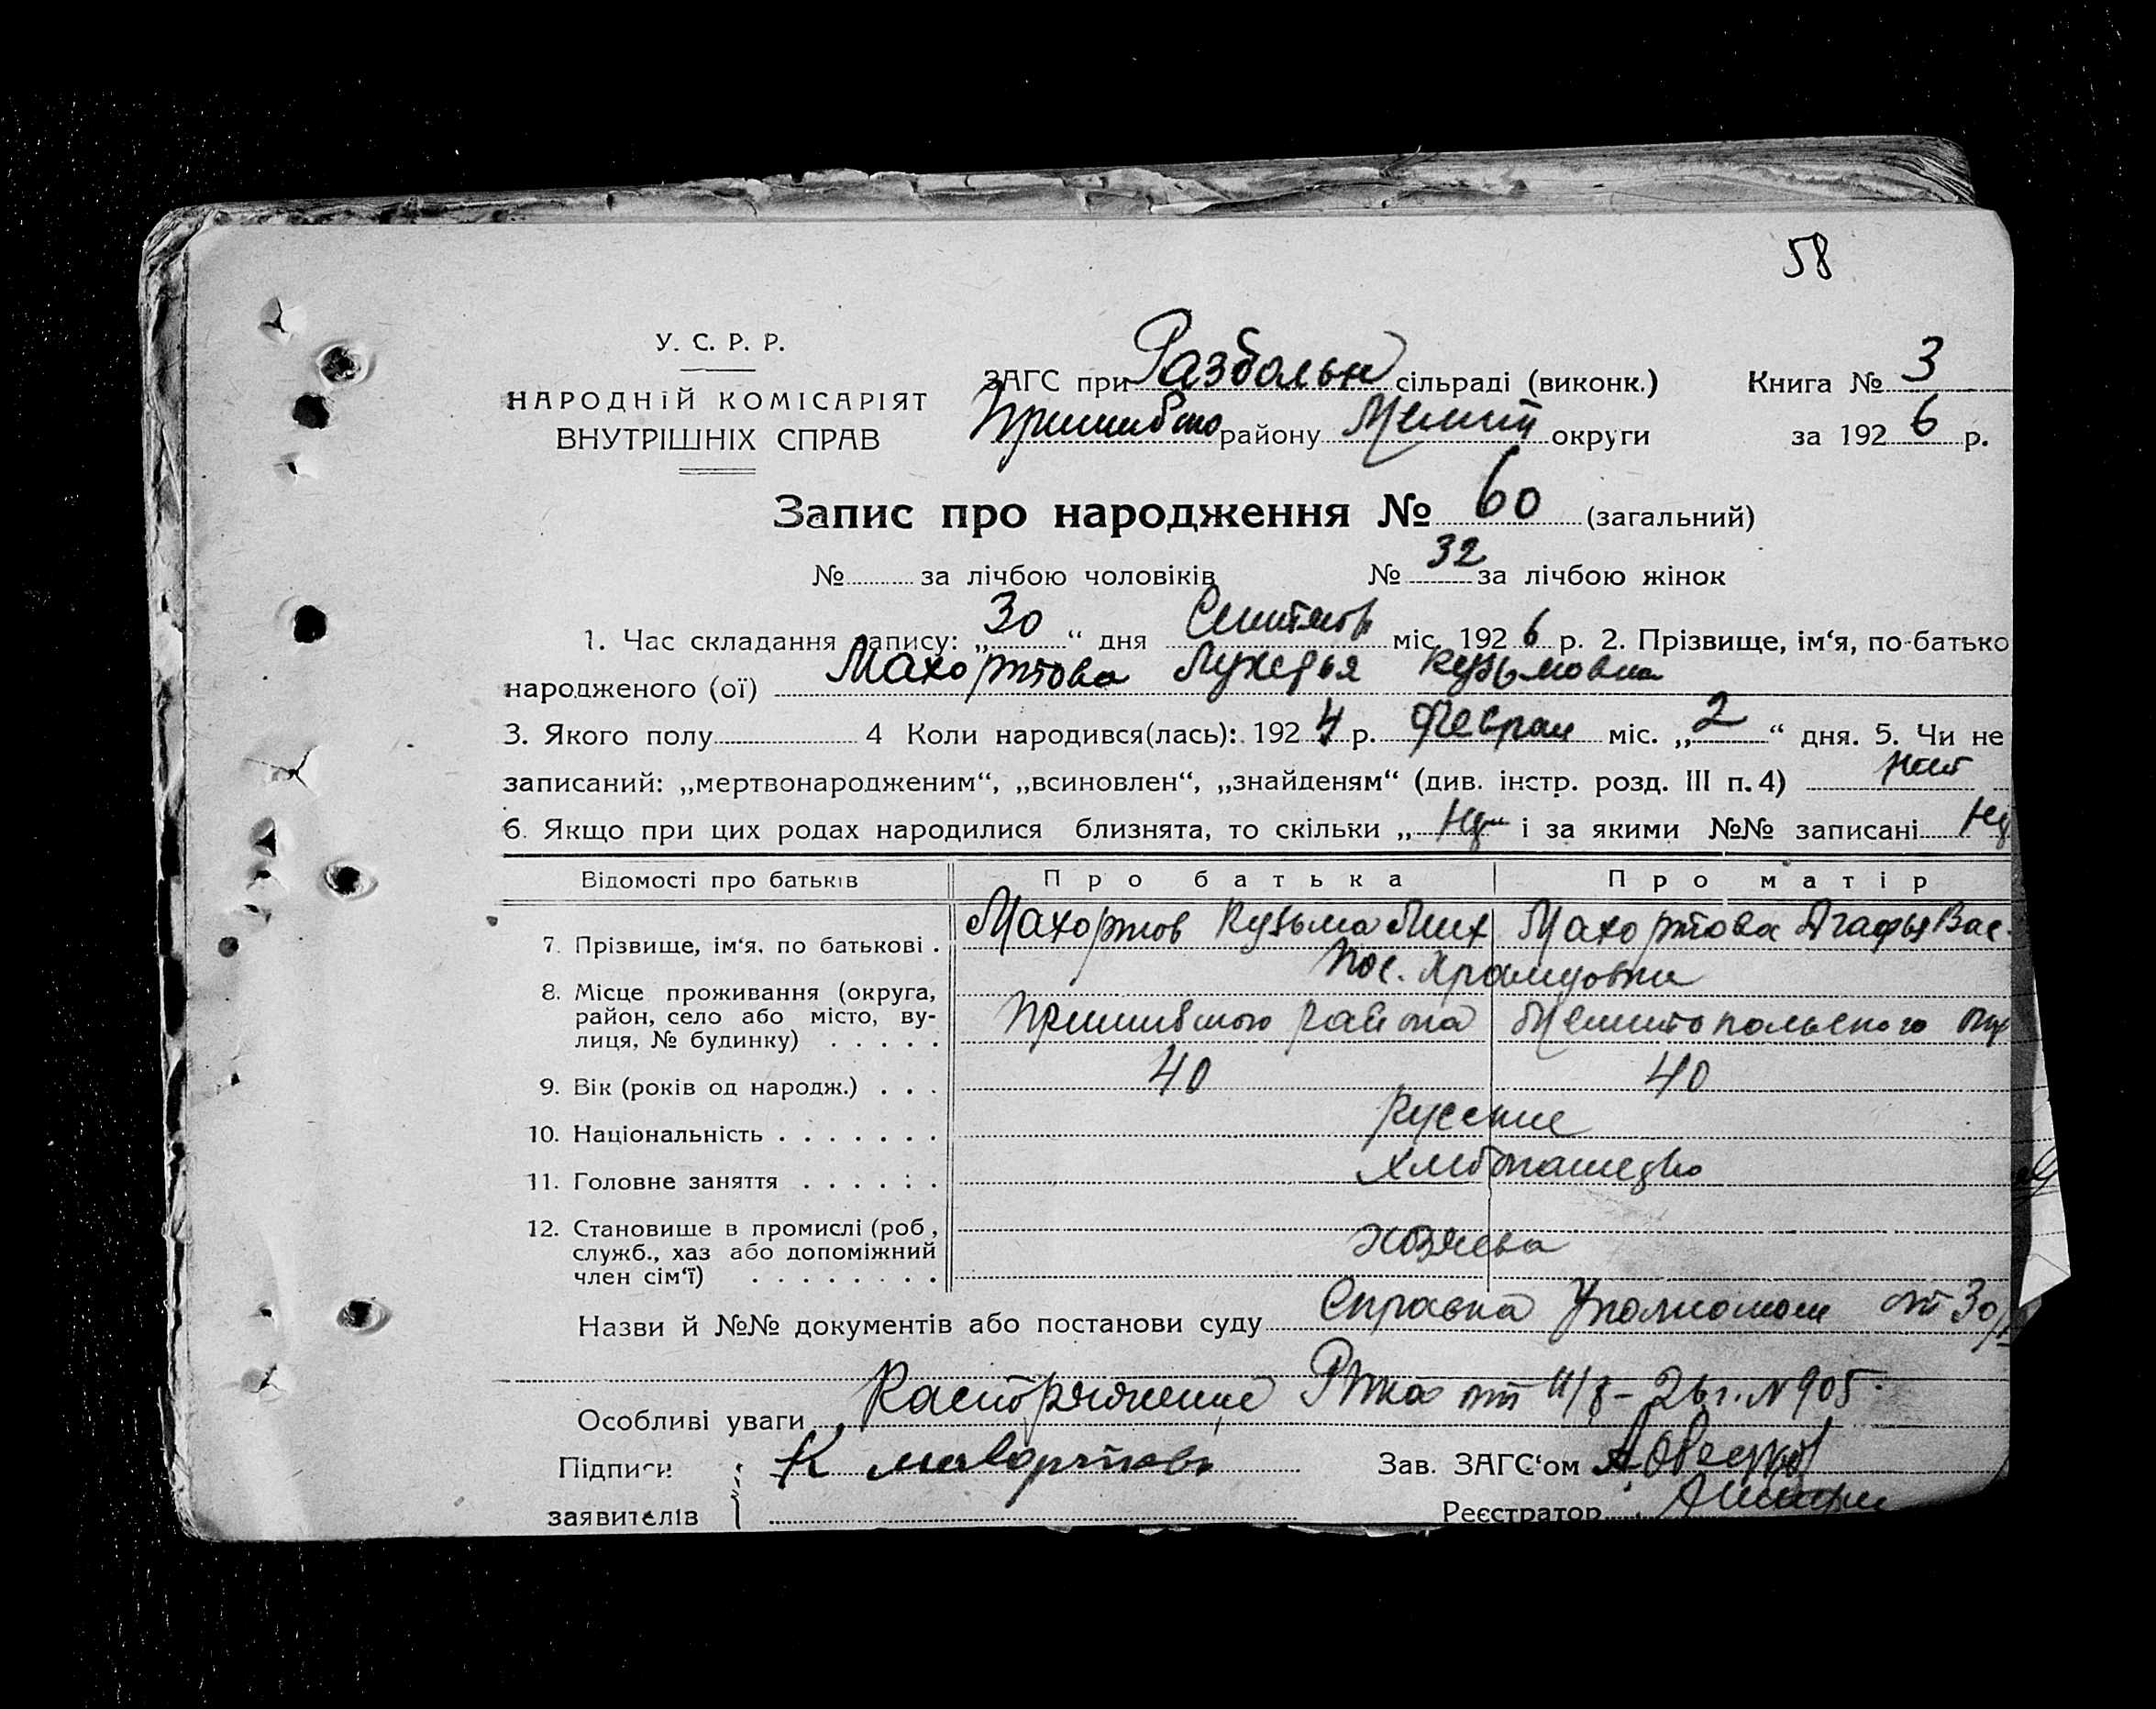 58
У. С. Р. Р.
НАРОДНІЙ КОМІСАРІЯТ
ВНУТРІШНІХ СПРАВ
ЗАГС при Разбольн сільраді (виконк.) Книга № 3
району Мелит округи за 192 6 р.
Запис про народження № 60 (загальний)
№ за лічбою чоловіків № 32 за лічбою жінок
1. Час складання запису: „ 30 “ дня міс. 192 6 р. 2. Прізвище, ім‘я, по-батько
народженого (ої) Махортова Лукерья Кузьмовна
3. Якого полу 4 Коли народився(лась): 192 4 р. Феврал міс. „ 2 “ дня. 5. Чи не
записаний: „мертвонародженим“, „всиновлен“, „знайденям“ (див. інстр. розд. III п. 4) нет
6. Якщо при цих родах народилися близнята, то скільки „ і за якими №№ записані
Відомості про батьків Про батька Про матір
7. Прізвище, ім‘я, по батькові . Махортов Кузьма Махортова Агафья Вас.
Пос.
8. Місце проживання (округа,
район, село або місто, ву-
лиця, № будинку) . . . . . района Мелитопольского
9. Вік (років од народж.) . . . 40 40
10. Національність . . . . . . . Русские
11. Головне заняття . . . . . . Хлебопашество
12. Становище в промислі (роб,
служб., хаз або допоміжний
член сім‘ї) . . . . . . . . Хозяева
Назви й №№ документів або постанови суду Справка Уполномоч от 30/
Особливі уваги Распоряжение от 11/8 – 26 г. N 905.
Підписи К Махортовъ Зав. ЗАГС‘ом
заявителів Реєстратор